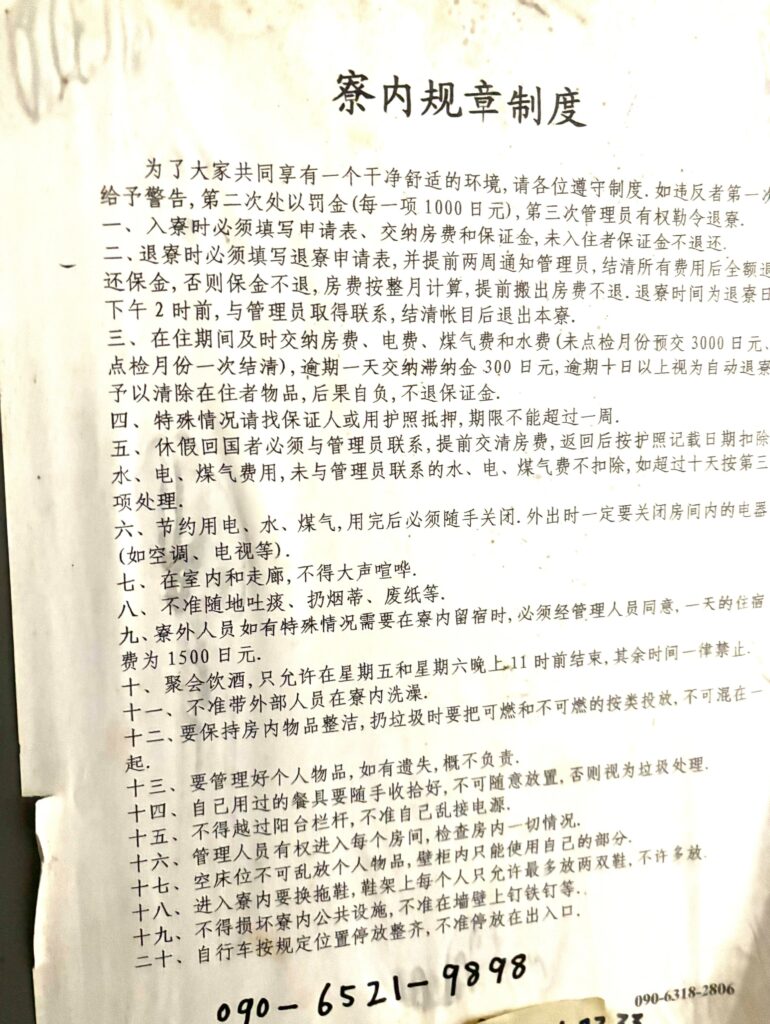 寮内规章制度
为了大家共同享有一个干净舒适的环境,请各位遵守制度.如违反者第一次
给予警告,第二次处以罚金(每一项1000日元),第三次管理员有权勒令退寮.
一、入寮时必须填写申请表、交纳房费和保证金,未入住者保证金不退还.
二、退寮时必须填写退寮申请表,并提前两周通知管理员,结清所有费用后全额退
还保金,否则保金不退,房费按整月计算,提前搬出房费不退.退寮时间为退寮日
下午2时前,与管理员取得联系,结清帐目后退出本寮.
三、在住期间及时交纳房费、电费、煤气费和水费(未点检月份预交3000日元、
点检月份一次结清),逾期一天交纳滞纳金300日元,逾期十日以上视为自动退寮
予以清除在住者物品,后果自负,不退保证金.
四、特殊情况请找保证人或用护照抵押,期限不能超过一周.
五、休假回国者必须与管理员联系,提前交清房费,返回后按护照记载日期扣除
水、电、煤气费用,未与管理员联系的水、电、煤气费不扣除,如超过十天按第三
项处理.
六、节约用电、水、煤气,用完后必须随手关闭.外出时一定要关闭房间内的电器
(如空调、电视等).
七、在室内和走廊,不得大声喧哗.
八、不准随地吐痰、扔烟蒂、废纸等.
九、寮外人员如有特殊情况需要在寮内留宿时,必须经管理人员同意,一天的住宿
费为1500日元.
十、聚会饮酒,只允许在星期五和星期六晚上11时前结束,其余时间一律禁止.
十一、不准带外部人员在寮内洗澡.
十二、要保持房内物品整洁,扔垃圾时要把可燃和不可燃的按类投放,不可混在一
起.
十三、要管理好个人物品,如有遗失,概不负责.
十四、自己用过的餐具要随手收拾好,不可随意放置,否则视为垃圾处理.
十五、不得越过阳台栏杆,不准自己乱接电源.
十六、管理人员有权进入每个房间,检查房内一切情况.
十七、空床位不可乱放个人物品,壁柜内只能使用自己的部分.
十八、进入寮内要换拖鞋,鞋架上每个人只允许最多放两双鞋,不许多放.
十九、不得损坏寮内公共设施,不准在墙壁上钉铁钉等.
二十、自行车按规定位置停放整齐,不准停放在出入口.
090-6521-9898
090-6318-2806